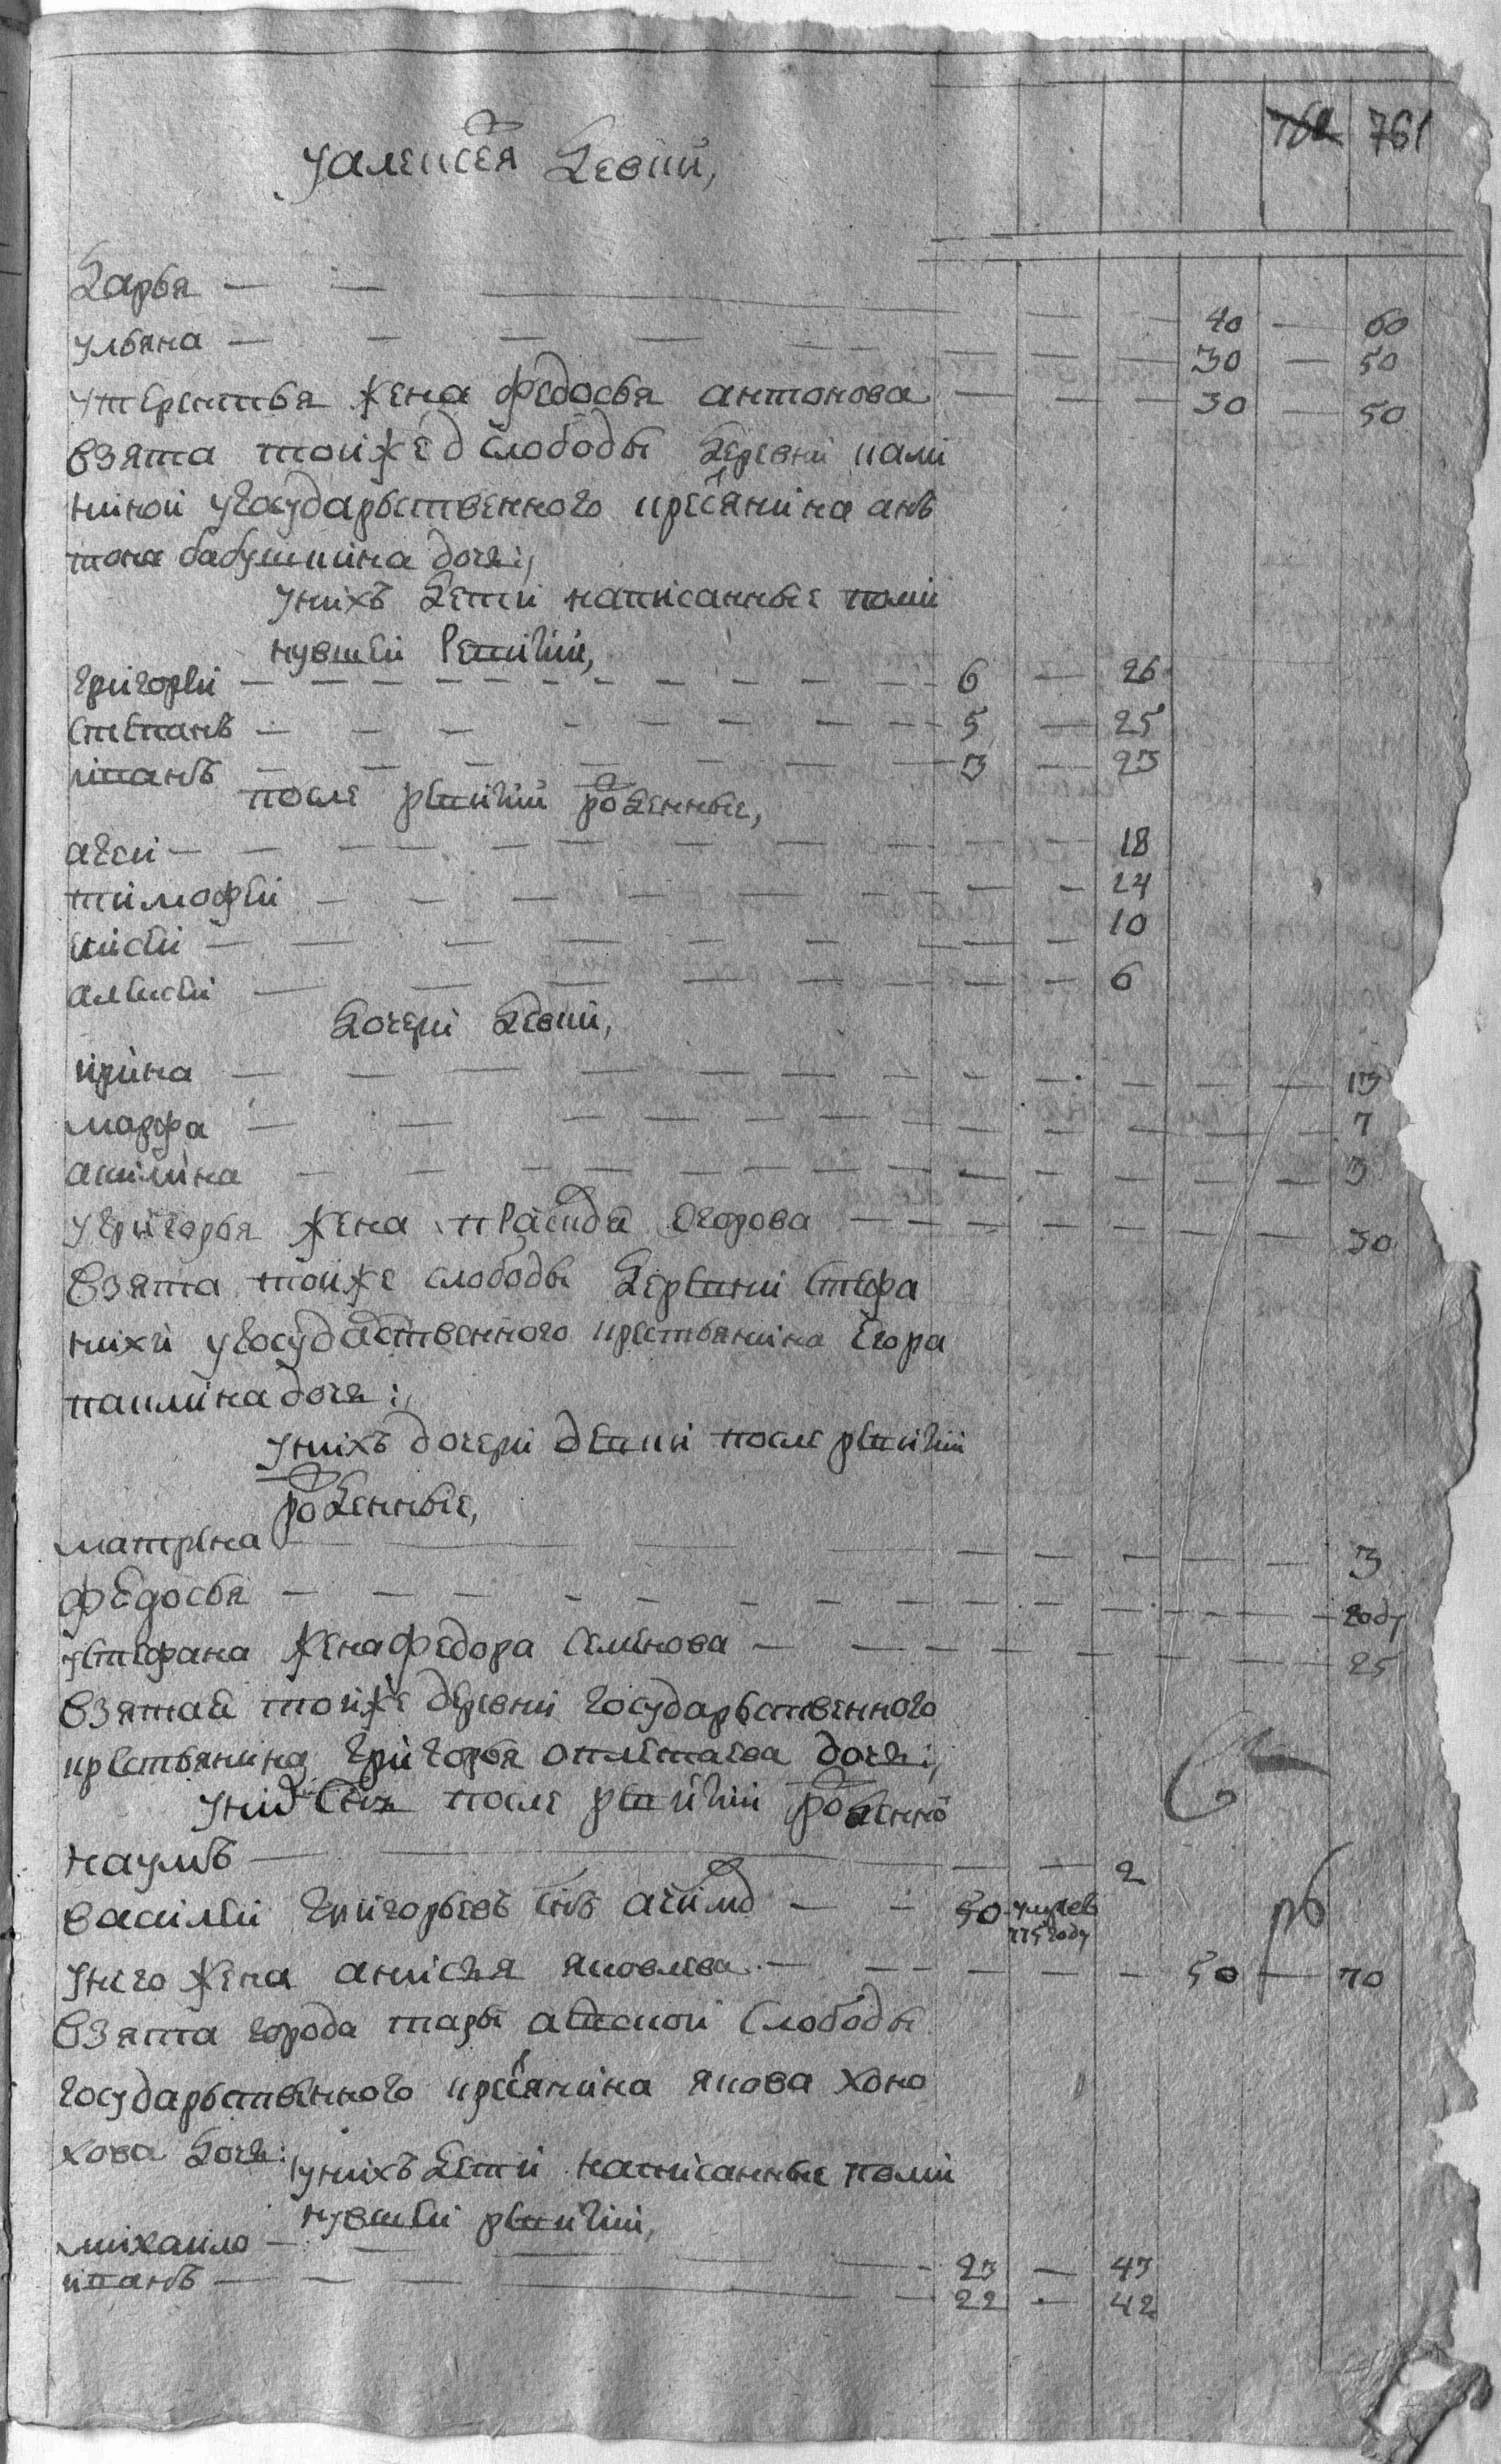 762 761
уалексея девки,
дарья — 40 — 60
ульяна — 30 — 50
утерентья жена федосья антонова — 30 — 50
взята тойже слободы деревни
угосударственного кресянина анъ
тона бабушкина дочь;
унихъ дети написанные поми
нувшей ревизии,
григорей — 6 — 26
степанъ — 5 — 25
иванъ — 3 — 23
после ревизии рожденные,
агей — 18
тимофей — 14
евсей — 10
алексей — 6
дочери девки,
ирина — 13
марфа — 7
акилина — 3
угригорья жена Егорова — 30
взята тойже слободы деревни стефа
нихи угосударственного крестьянина Егора
паклина дочь:,
унихъ дочери девки после ревизии
рожденные,
матрена — 3
федосья — году
устефана жена федора семенова — 25
взятая тойже деревни государьственного
крестьянина григорья оплетаева дочь;
унихъ сынъ после ревизии рожденно
наумъ — 2
василей григорьевъ снъ — 50 умревъ
775 году
унего жена анисья яковлева — 50 — 70
взята города тары слободы
государьственного кресянина якова коно
хова дочь:
унихъ дети написанные поми
нувшей ревизии,
михаило — 23 — 43
иванъ — 22 — 42